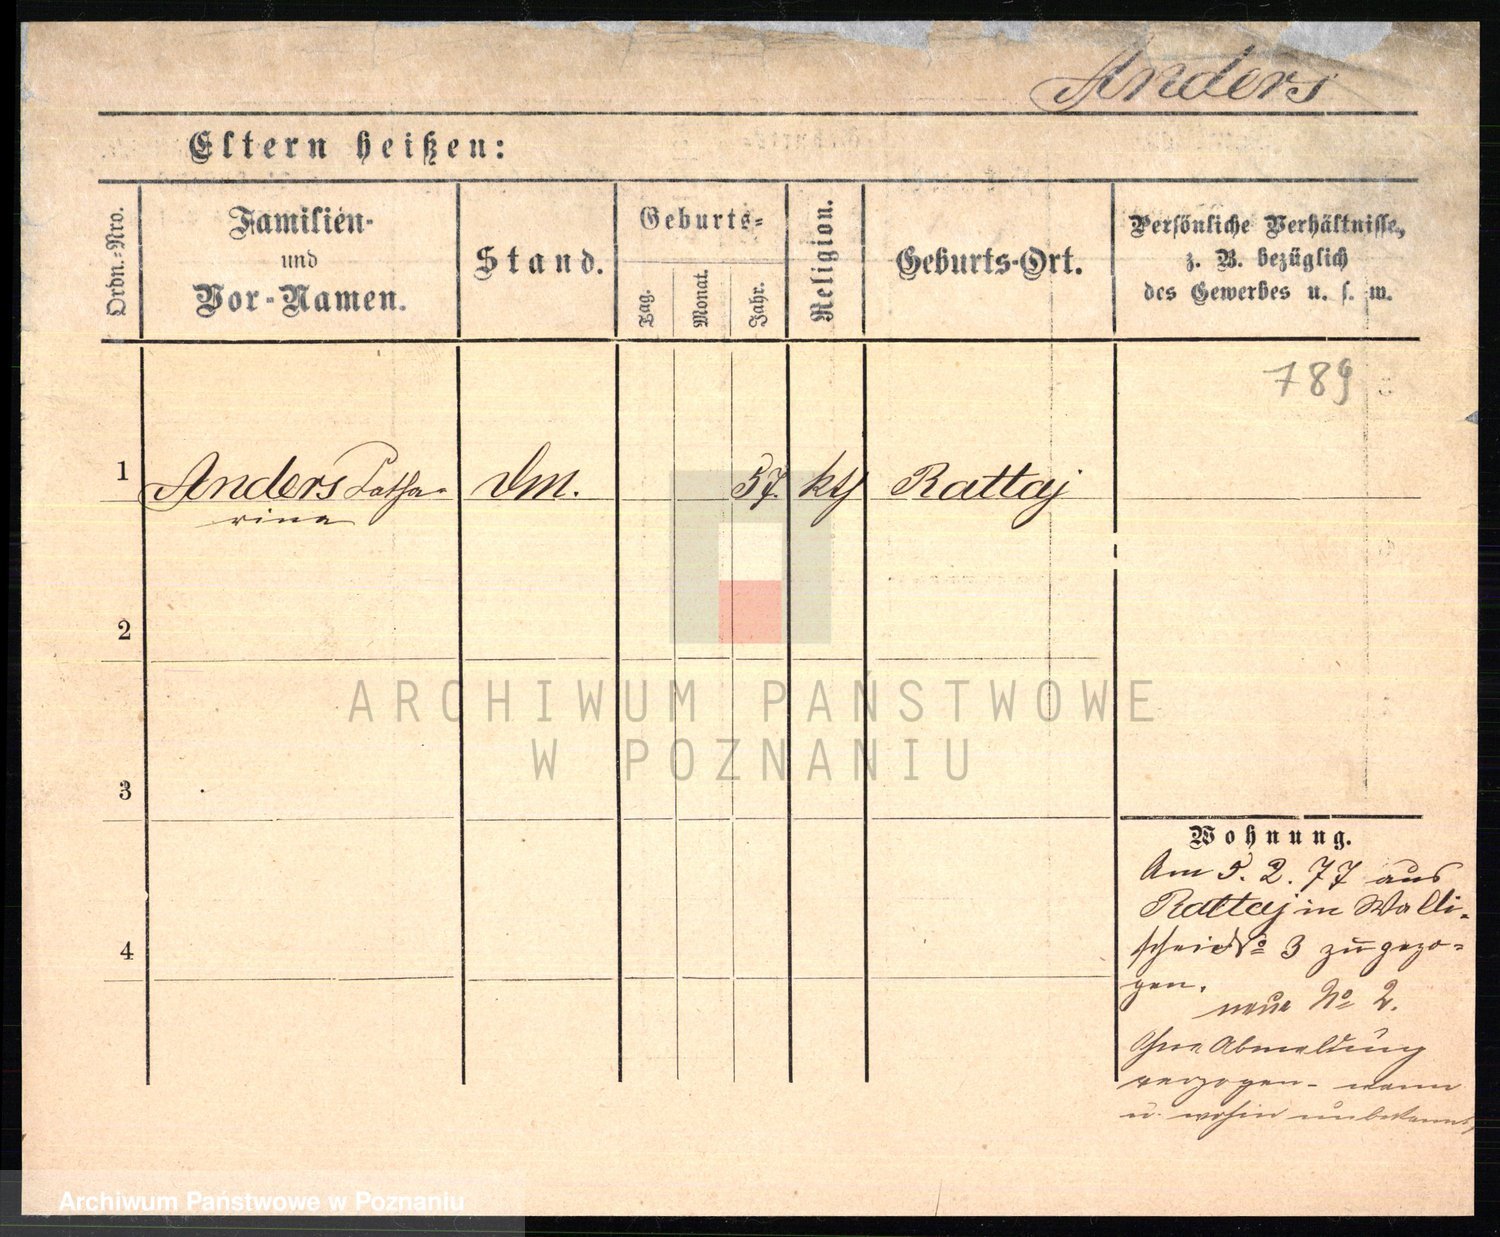 Anders
Eltern heißen:
Ordn.-Nro.
Familien-
und
Vor-Namen.
Stand.
Geburts-
Tag.
Monat.
Jahr.
Religion.
Geburts-Ort.
Persönliche Verhältnisse,
z. B. bezüglich
des Gewerbes u. s. w.
789
1
Anders Catha-
rina
Dm.
57.
kth
Rattaj
2
3
4
ARCHIWUM PAŃSTWOWE
W POZNANIU
Wohnung.
Am 5. 2. 77 aus
Rattaj in Walli-
schei No 3 zugezo-
gen.
neue No 2.
Ohne Abmeldung
verzogen - wann
u. wohin unbekannt,
Archiwum Państwowe w Poznaniu